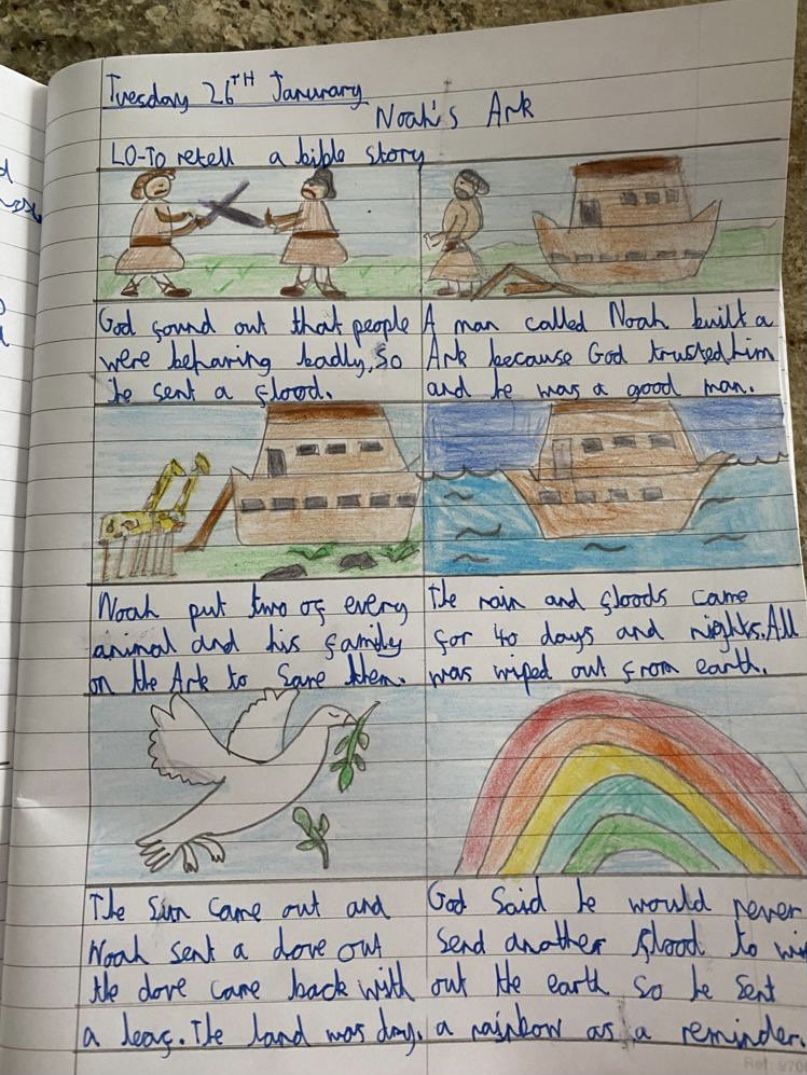 Tuesday 26TH Janurary
Noah's Ark
LO-To retell a bible story
God found out that people
were behaving badly, so
he sent a flood.
A man called Noah built a
Ark because God trusted him
and he was a good man.
Noah put two of every
animal and his family
on the Ark to save them.
The rain and floods came
for 40 days and nights. All
was wiped out from earth.
The Sun came out and
Noah sent a dove out
the dove came back with
a leaf. The land was dry.
God Said he would never
Send another flood to
out the earth so he sent
a rainbow as a reminder.